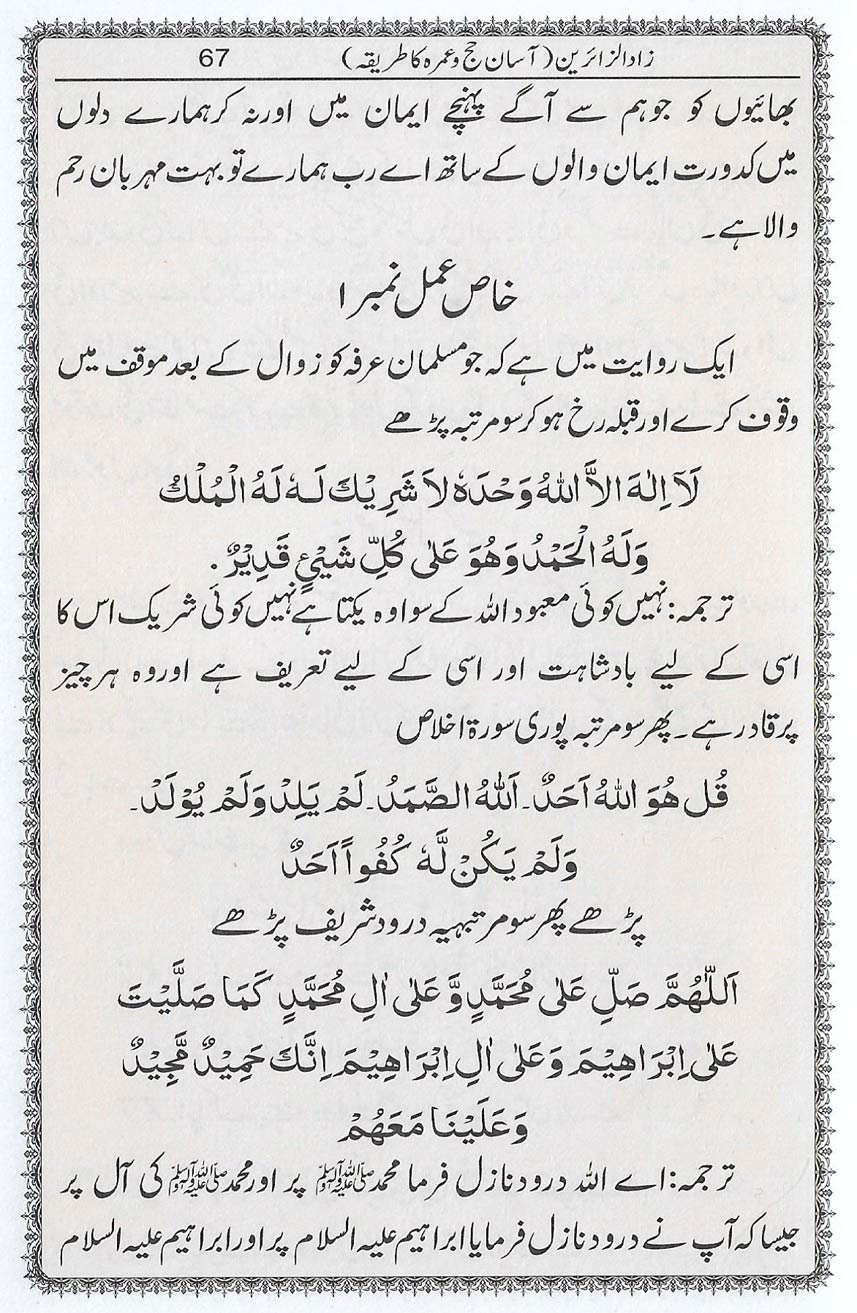 زاد الزائرین (آسان حج و عمرہ کا طریقہ) 67
بھائیوں کو جوہم سے آگے پہنچے ایمان میں اورنہ کرہمارے دلوں
میں کدورت ایمان والوں کے ساتھ اے رب ہمارے تو بہت مہربان رحم
والا ہے۔
خاص عمل نمبر ۱
ایک روایت میں ہے کہ جو مسلمان عرفہ کو زوال کے بعد موقف میں
وقوف کرے اور قبلہ رخ ہو کر سو مرتبہ پڑھے
لَآ اِلٰهَ الاَّ اللهُ وَحْدَهٗ لاَ شَرِيْكَ لَـهٗ لَهُ الْمُلْكُ
وَلَهُ الْحَمْدُ وَهُوَ عَلٰى كُلِّ شَيْئٍ قَدِيْرٌ .
ترجمہ: نہیں کوئی معبود اللہ کے سوا وہ یکتا ہے نہیں کوئی شریک اس کا
اسی کے لیے بادشاہت اور اسی کے لیے تعریف ہے اور وہ ہر چیز
پر قادر ہے۔ پھر سو مرتبہ پوری سورۃ اخلاص
قُل هُوَ اللهُ اَحَدٌ۔ اَللهُ الصَّمَدُ۔ لَمْ يَلِدْ وَلَمْ يُوْلَدْ۔
وَلَمْ يَكُنْ لَّهٗ كُفُواً اَحَدٌ
پڑھے پھر سو مرتبہ یہ درود شریف پڑھے
اَللّٰهُمَّ صَلِّ عَلٰى مُحَمَّدٍ وَّ عَلٰى اٰلِ مُحَمَّدٍ كَمَا صَلَّيْتَ
عَلٰى اِبْرَاهِيْمَ وَعَلٰى اٰلِ اِبْرَاهِيْمَ اِنَّكَ حَمِيْدٌ مَّجِيْدٌ
وَعَلَيْنَا مَعَهُمْ
ترجمہ: اے اللہ درود نازل فرما محمدﷺ پر اور محمدﷺ کی آل پر
جیسا کہ آپ نے درود نازل فرمایا ابراہیم علیہ السلام پر اور ابراہیم علیہ السلام